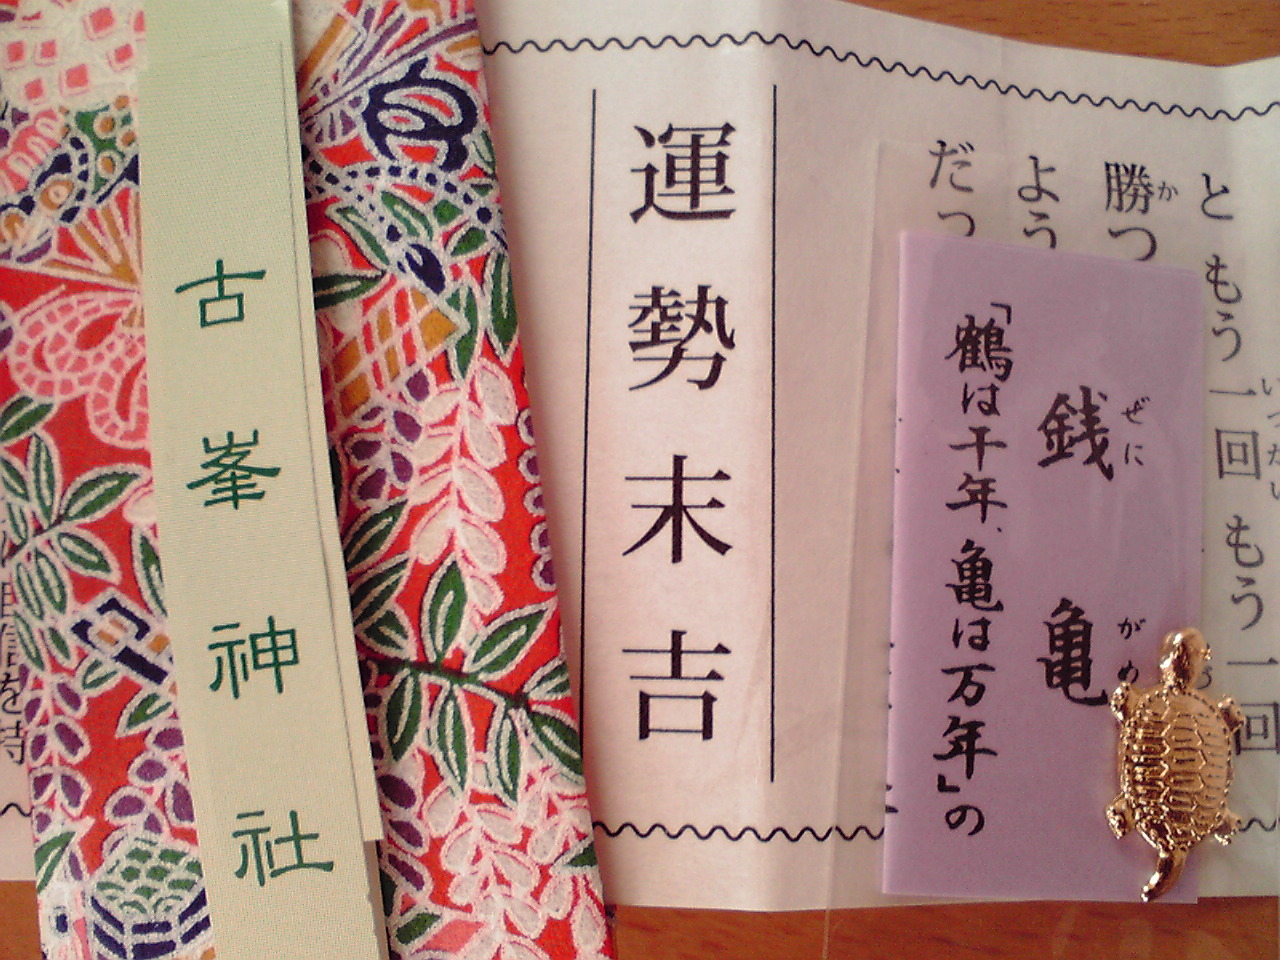 ともう一回もう一回
勝つ
よう
だっ
運勢末吉
銭亀
ぜにがめ
「鶴は千年、亀は万年」の
古峯神社